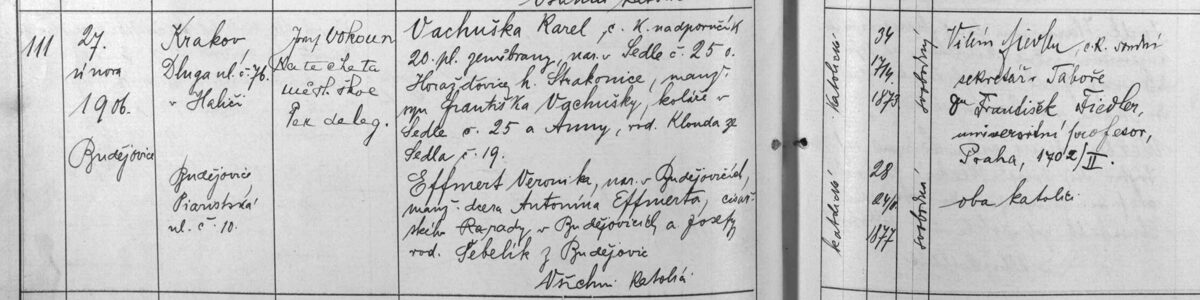 111
27.
února
1906.
Budějovice
Krakov
Dluga ul. č. 76.
v Haliči
Budějovice
Piaristská
ul. č. 10.
Josef Vokoun
Katecheta
měšť. škol
Per deleg.
Vachuška Karel, c. k. nadporučík
20. pl. zeměbrany, nar. v Sedle č. 25 o.
Horažďovice h. Strakonice, manž.
syn Františka Vachušky, koláře v
Sedle č. 25 a Anny, rod. Klouda ze
Sedla č. 19.
Effmert Veronika, nar. v Budějovicích,
manž. dcera Antonína Effmerta, císař-
ského rady, v Budějovicích a Josefy
rod. Šebelík z Budějovic
Všichni katolíci
katolické
34
17/4.
1873
svobodný
katolické
28
24/
1877
svobodná
Vilém Fiedler, c.k. soudní
sekretář v Táboře
Dr František Fiedler,
universitní profesor,
Praha, 1702/II.
oba katolíci